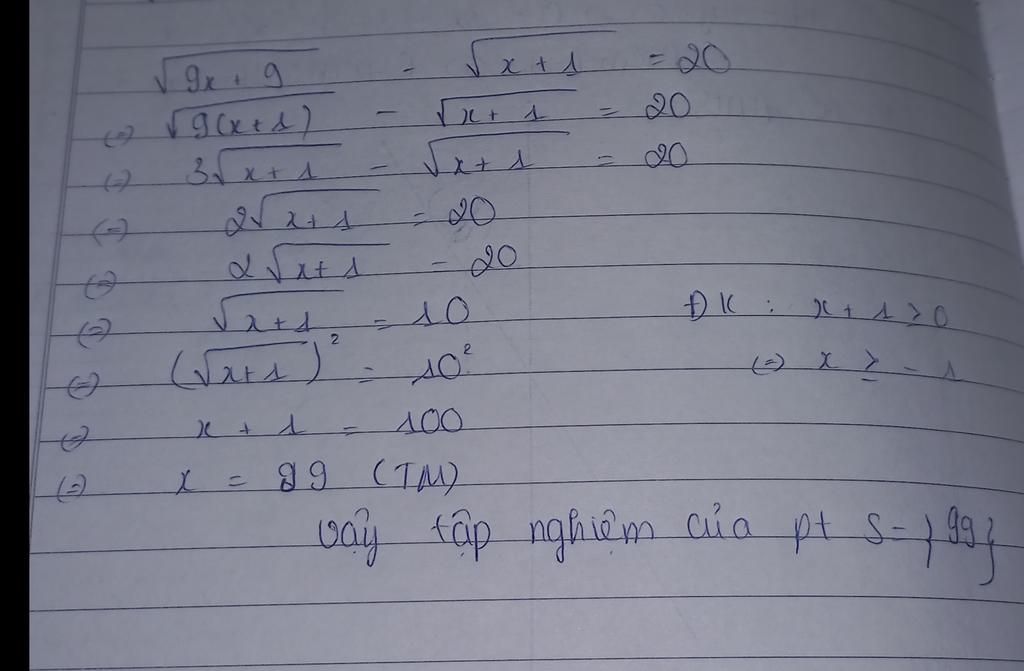 √9x + 9 - √x + 1 = 20
(=) √9(x+1) - √x + 1 = 20
(=) 3√x + 1 - √x + 1 = 20
(=) 2√x + 1 = 20
(=) 2√x + 1 = 20
(=) √x + 1 = 10 ĐK : x + 1 ≥ 0
(=) (√x+1)² = 10² (=) x ≥ - 1
(=) x + 1 = 100
(=) x = 99 (TM)
Vậy tập nghiệm của pt S = {99}